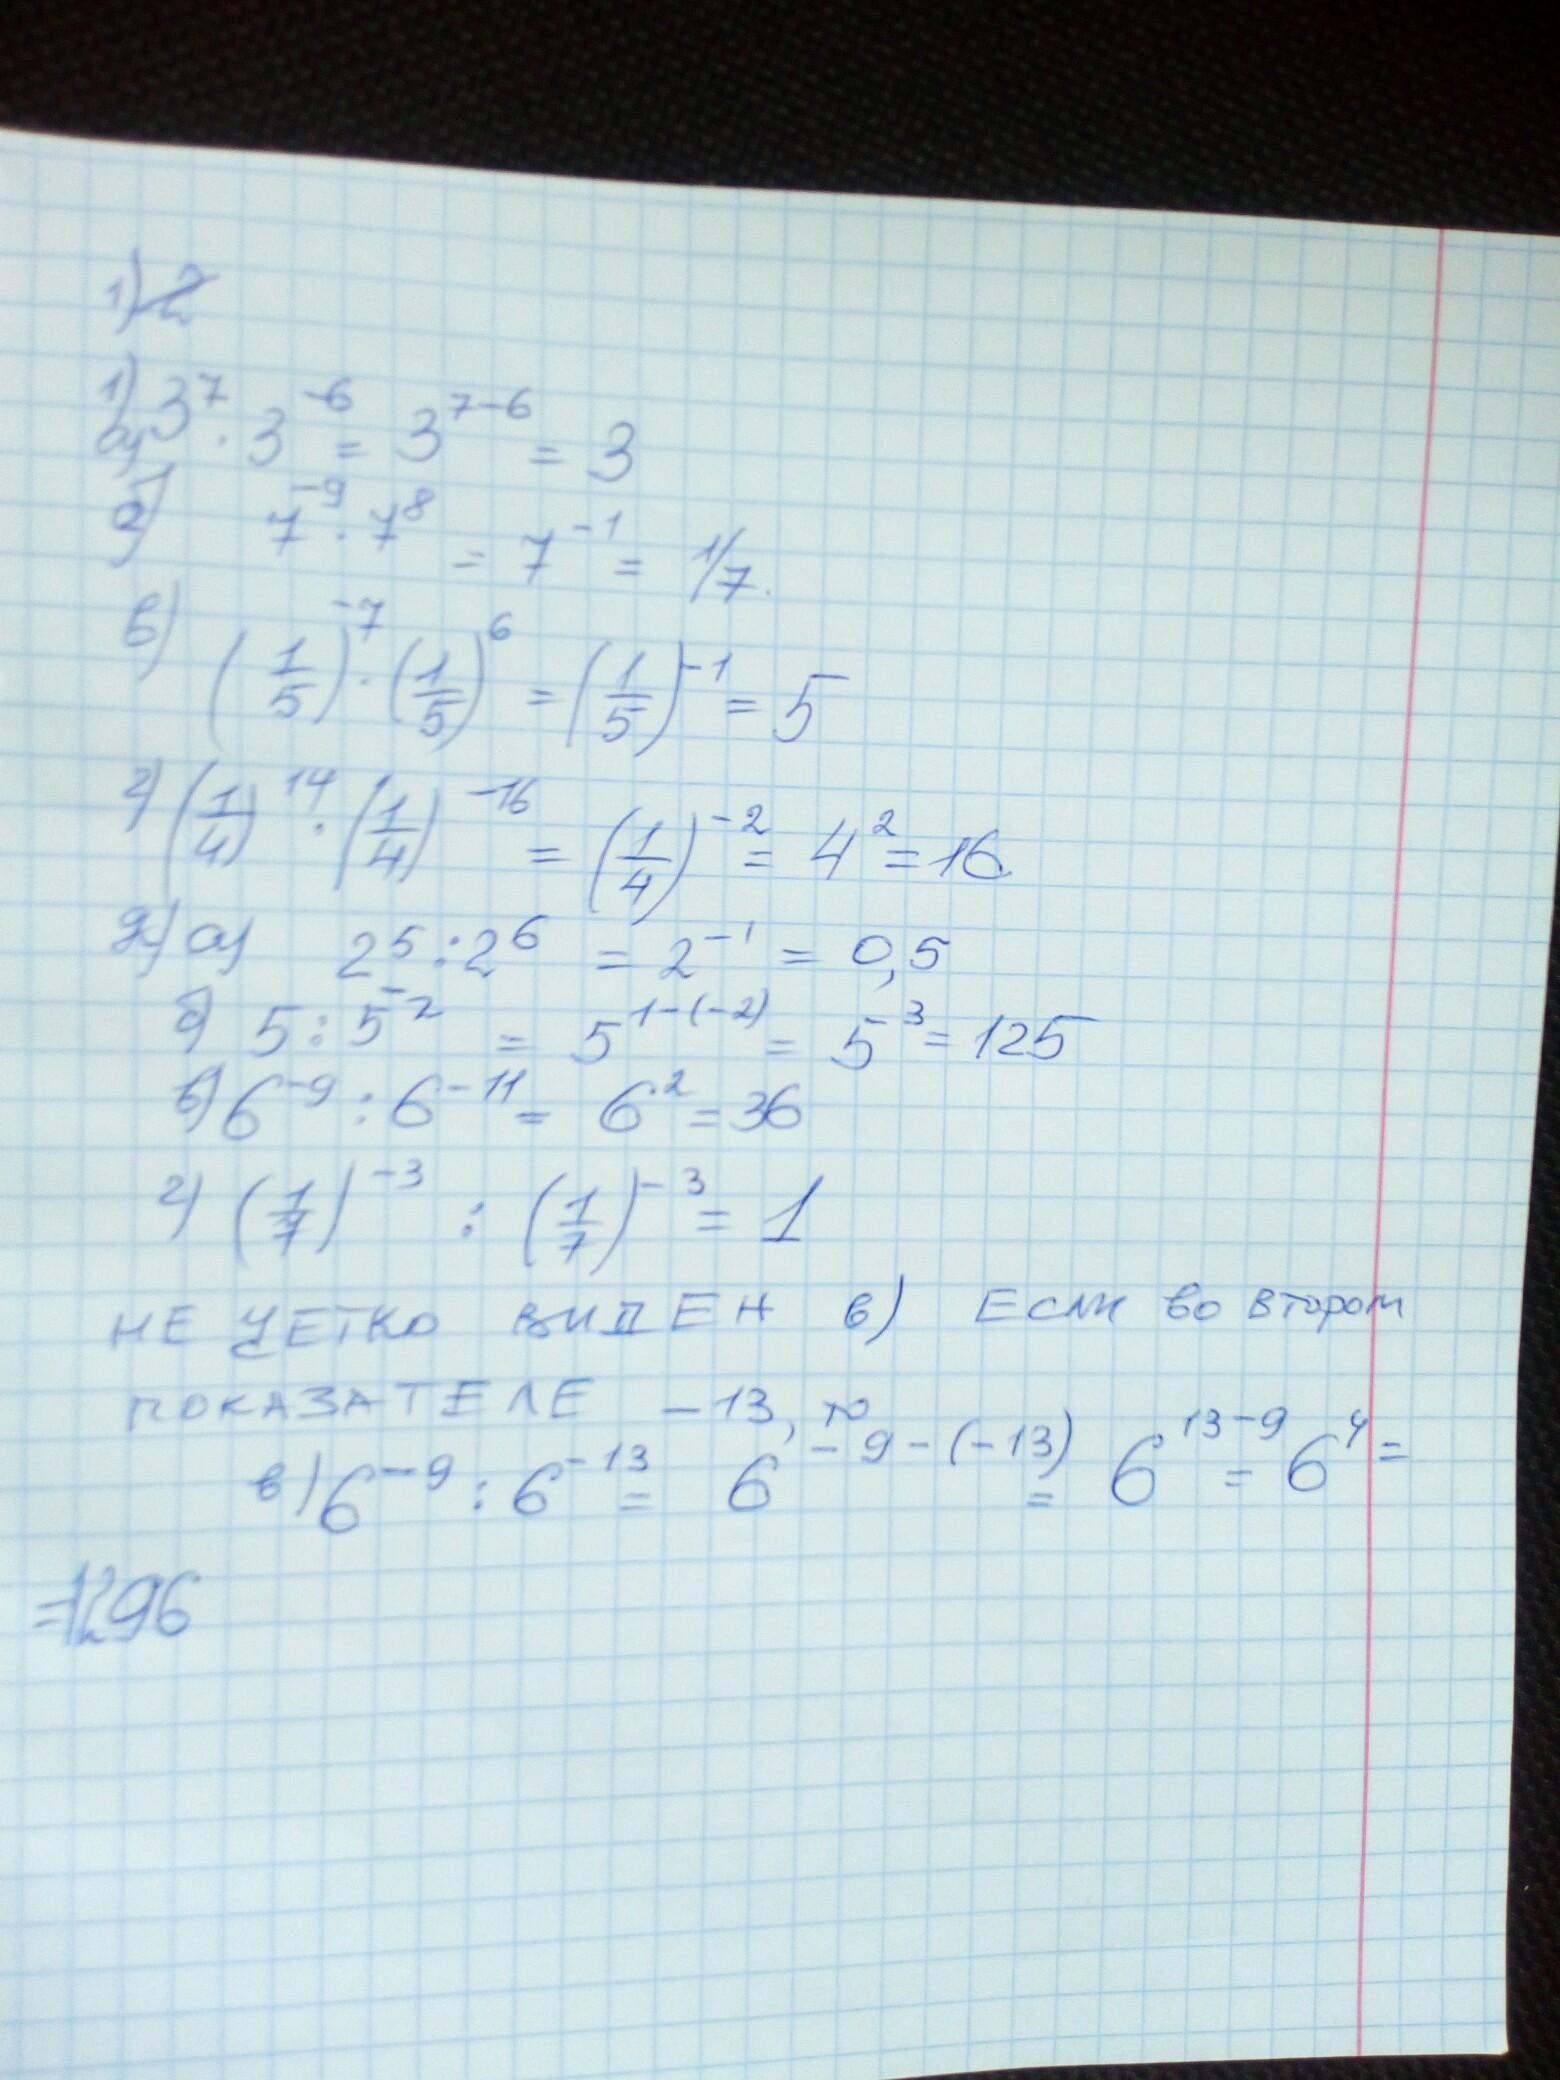 1) 2
1)
а) 3⁷ · 3⁻⁶ = 3⁷⁻⁶ = 3
б) 7⁻⁹ · 7⁸ = 7⁻¹ = 1/7.
в) (1/5)⁻⁷ · (1/5)⁶ = (1/5)⁻¹ = 5
г) (1/4)¹⁴ · (1/4)⁻¹⁶ = (1/4)⁻² = 4² = 16
2) а) 2⁵ : 2⁶ = 2⁻¹ = 0,5
б) 5 : 5⁻² = 5¹⁻⁽⁻²⁾ = 5³ = 125
в) 6⁻⁹ : 6⁻¹¹ = 6² = 36
г) (1/7)⁻³ : (1/7)⁻³ = 1
НЕ ЧЕТКО ВИДЕН в) Если во втором
ПОКАЗАТЕЛЕ -13, то
в) 6⁻⁹ : 6⁻¹³ = 6⁻⁹⁻⁽⁻¹³⁾ = 6¹³⁻⁹ = 6⁴ =
=1296